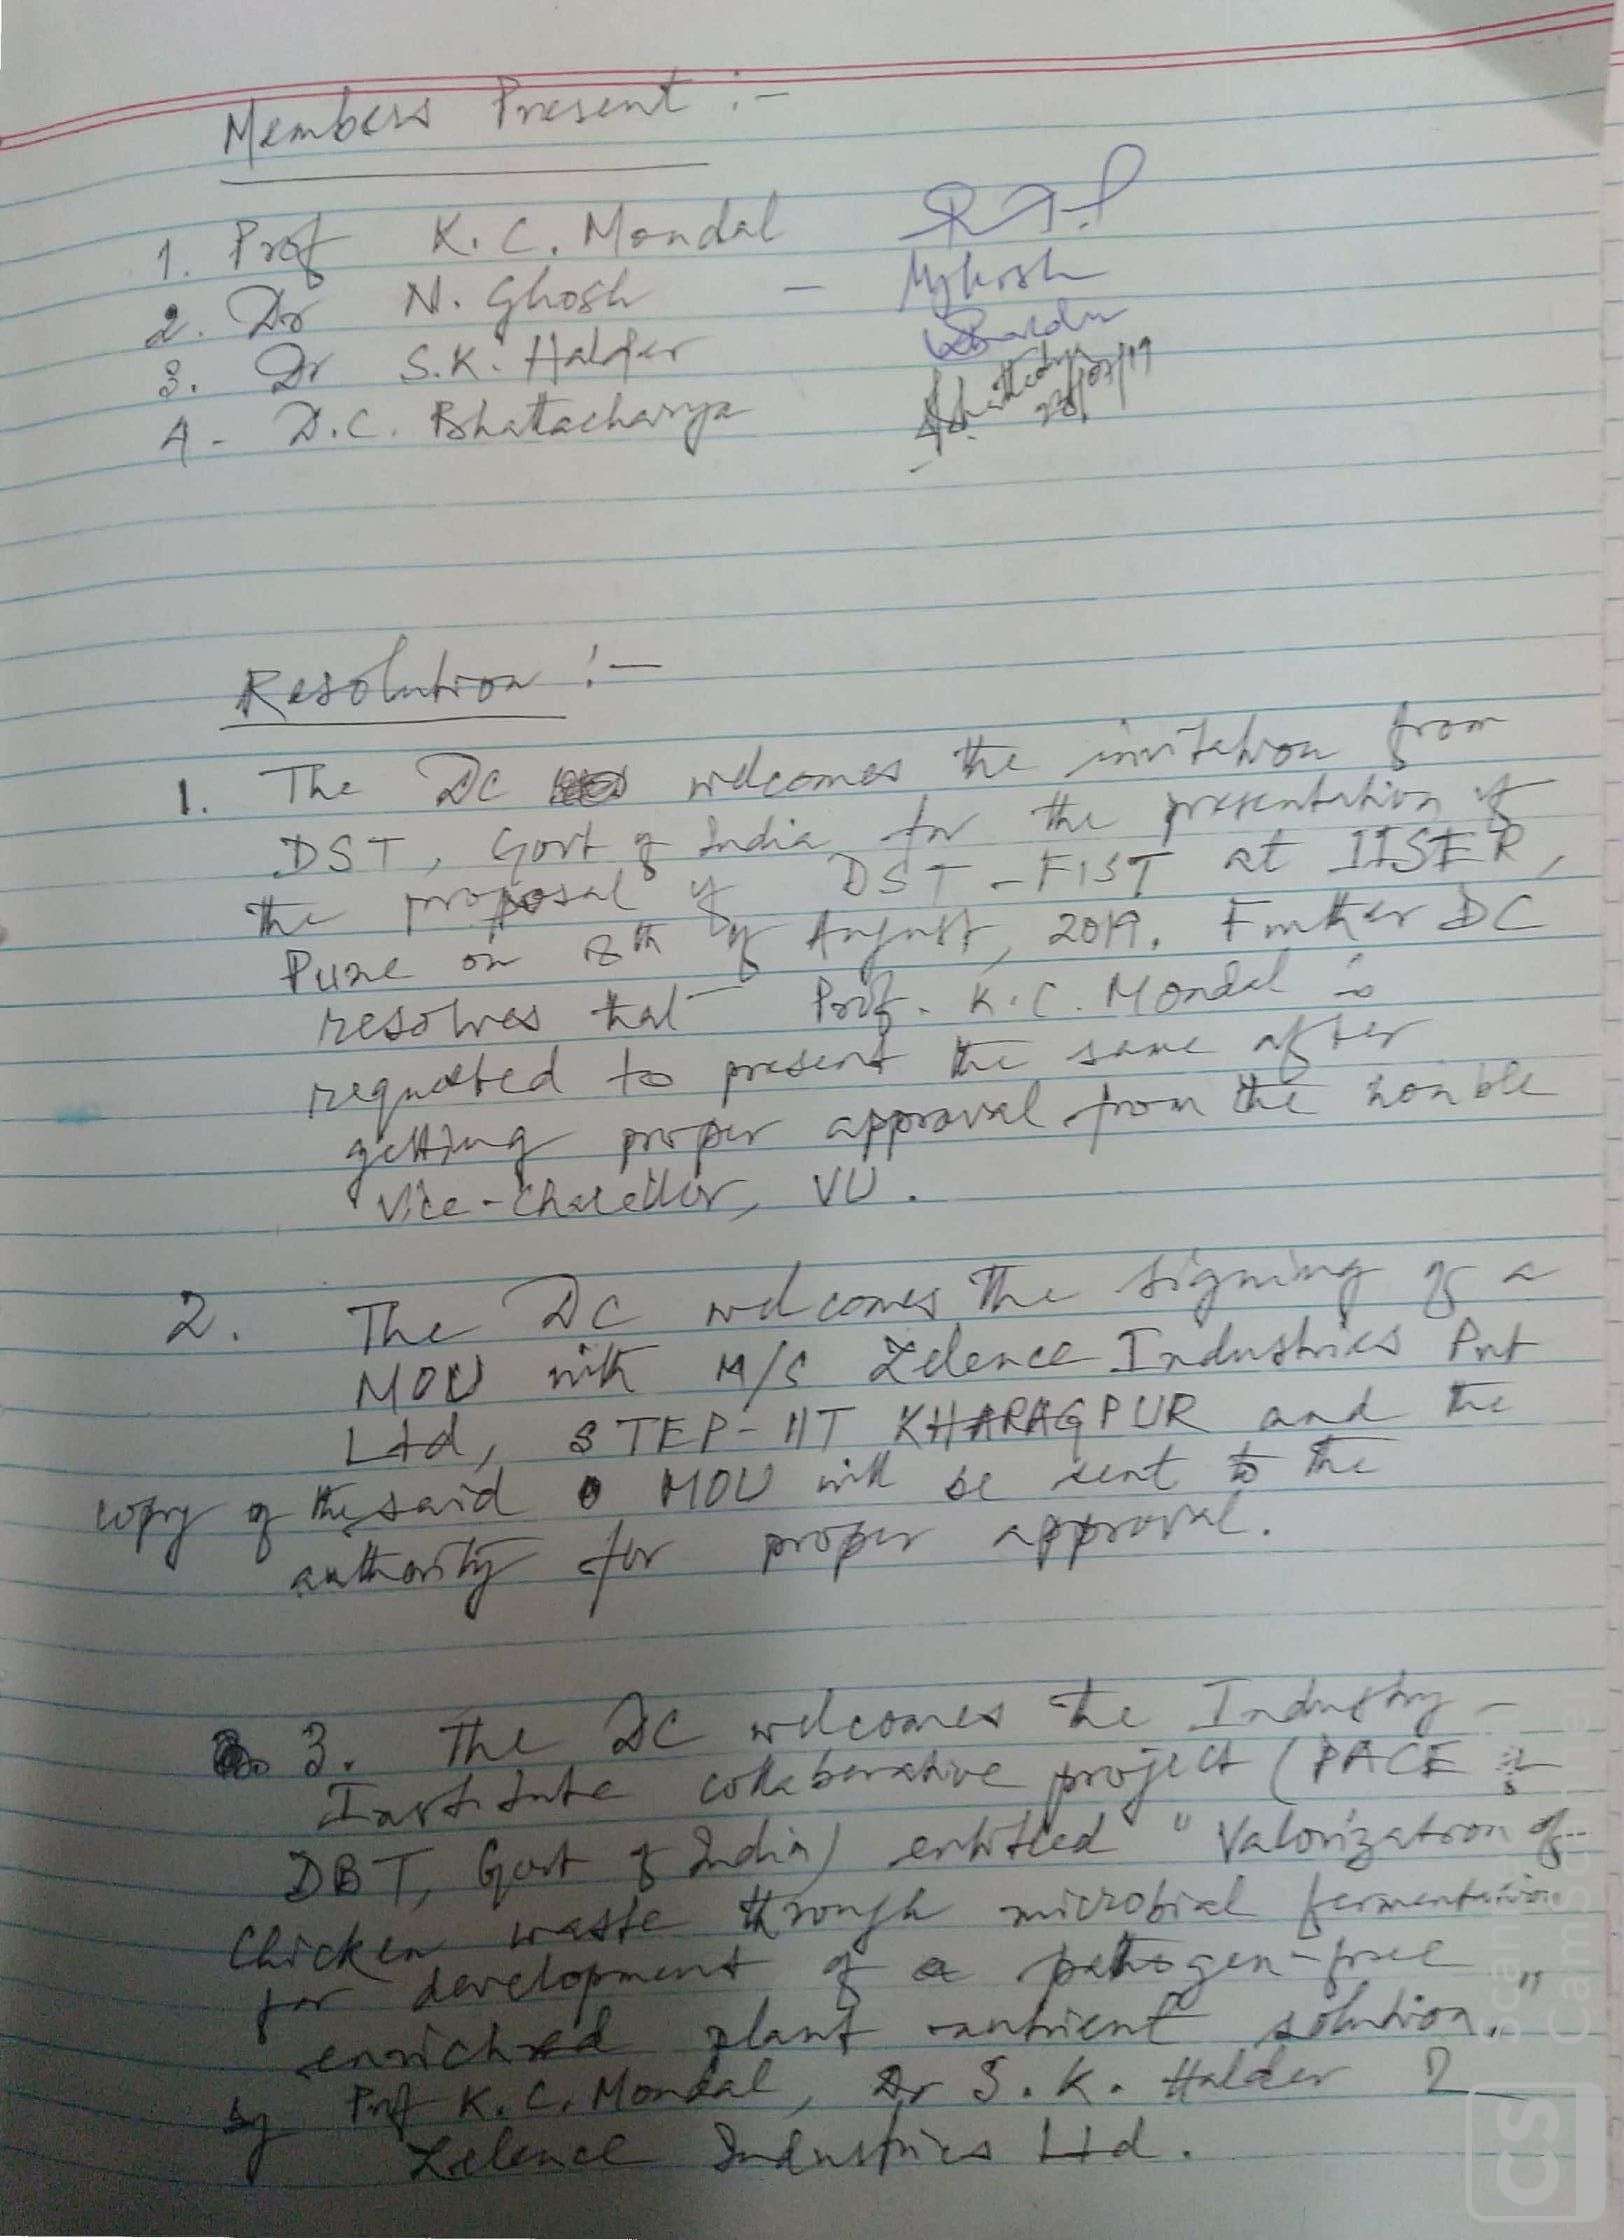 Members Present :-
1. Prof K. C. Mondal
2. Dr N. Ghosh - NGhosh
3. Dr S.K. Halder
4 - D.C. Bhattacharya
23/07/19
Resolution :-
1. The DC welcomes the invitation from
DST, Govt of India for the presentation of
the proposal of DST-FIST at IISER,
Pune on 8th of August, 2019. Further DC
resolves that Prof. K.C. Mondal is
requested to present the same after
getting proper approval from the honble
Vice-Chancellor, VU.
2. The DC welcomes the signing of a
MOU with M/S Zelence Industries Pvt
Ltd, STEP-IIT KHARAGPUR and the
copy of the said MOU will be sent to the
authority for proper approval.
3. The DC welcomes the Industry -
Institute collaborative project (PACE
DBT, Govt of India) entitled "Valorization of
Chicken waste through microbial fermentation
for development of a pathogen-free
enriched plant nutrient solution."
by Prof K. C. Mondal, Dr S. K. Halder &
Zelence Industries Ltd.
CS